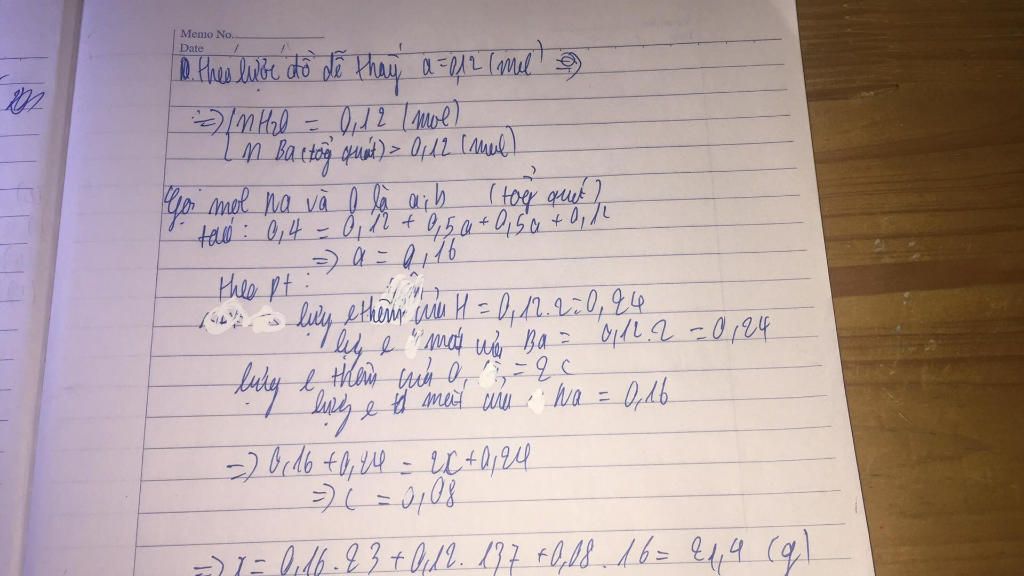 Memo No.
Date / /
201
theo lược đồ dễ thấy a = 0,12 (mol) =>
=> { nH2O = 0,12 (mol)
n Ba (tổng quát) = 0,12 (mol)
Gọi mol Na và O là a; b (tổng quát)
: 0,4 = 0,12 + 0,5a + 0,5a + 0,12
=> a = 0,16
theo pt :
lượng e thêm của H = 0,12.2 = 0,24
lượng e mất của Ba = 0,12.2 = 0,24
lượng e thêm của O = 2c
lượng e mất của Na = 0,16
=> 0,16 + 0,24 = 2c + 0,24
=> c = 0,08
=> x = 0,16.23 + 0,12.137 + 0,08.16 = 21,4 (g)